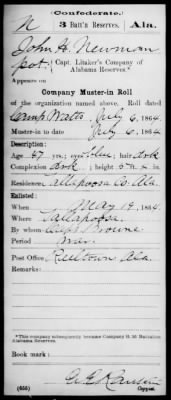 (Confederate.)
N 3 Batt'n Reserves. Ala.
John H. Newman
Capt. Litaker's Company of
Pvt.,
Alabama Reserves.*
Appears on
Company Muster-in Roll
of the organization named above. Roll dated
Camp Watts, July 6, 1864.
Muster-in to date July 6, 1864.
Description:
Age 47 years; eyes blue; hair dark
Complexion dark; height 5 ft. in.
Residence, Tallapoosa Co. Ala.
Enlisted:
When May 19, 1864.
Where Tallapoosa.
By whom Capt. Browne
Period War.
Post Office, Reeltown Ala.
Remarks:
*This company subsequently became Company H, 3d Battalion
Alabama Reserves.
Book mark:
(656)
Copyist.